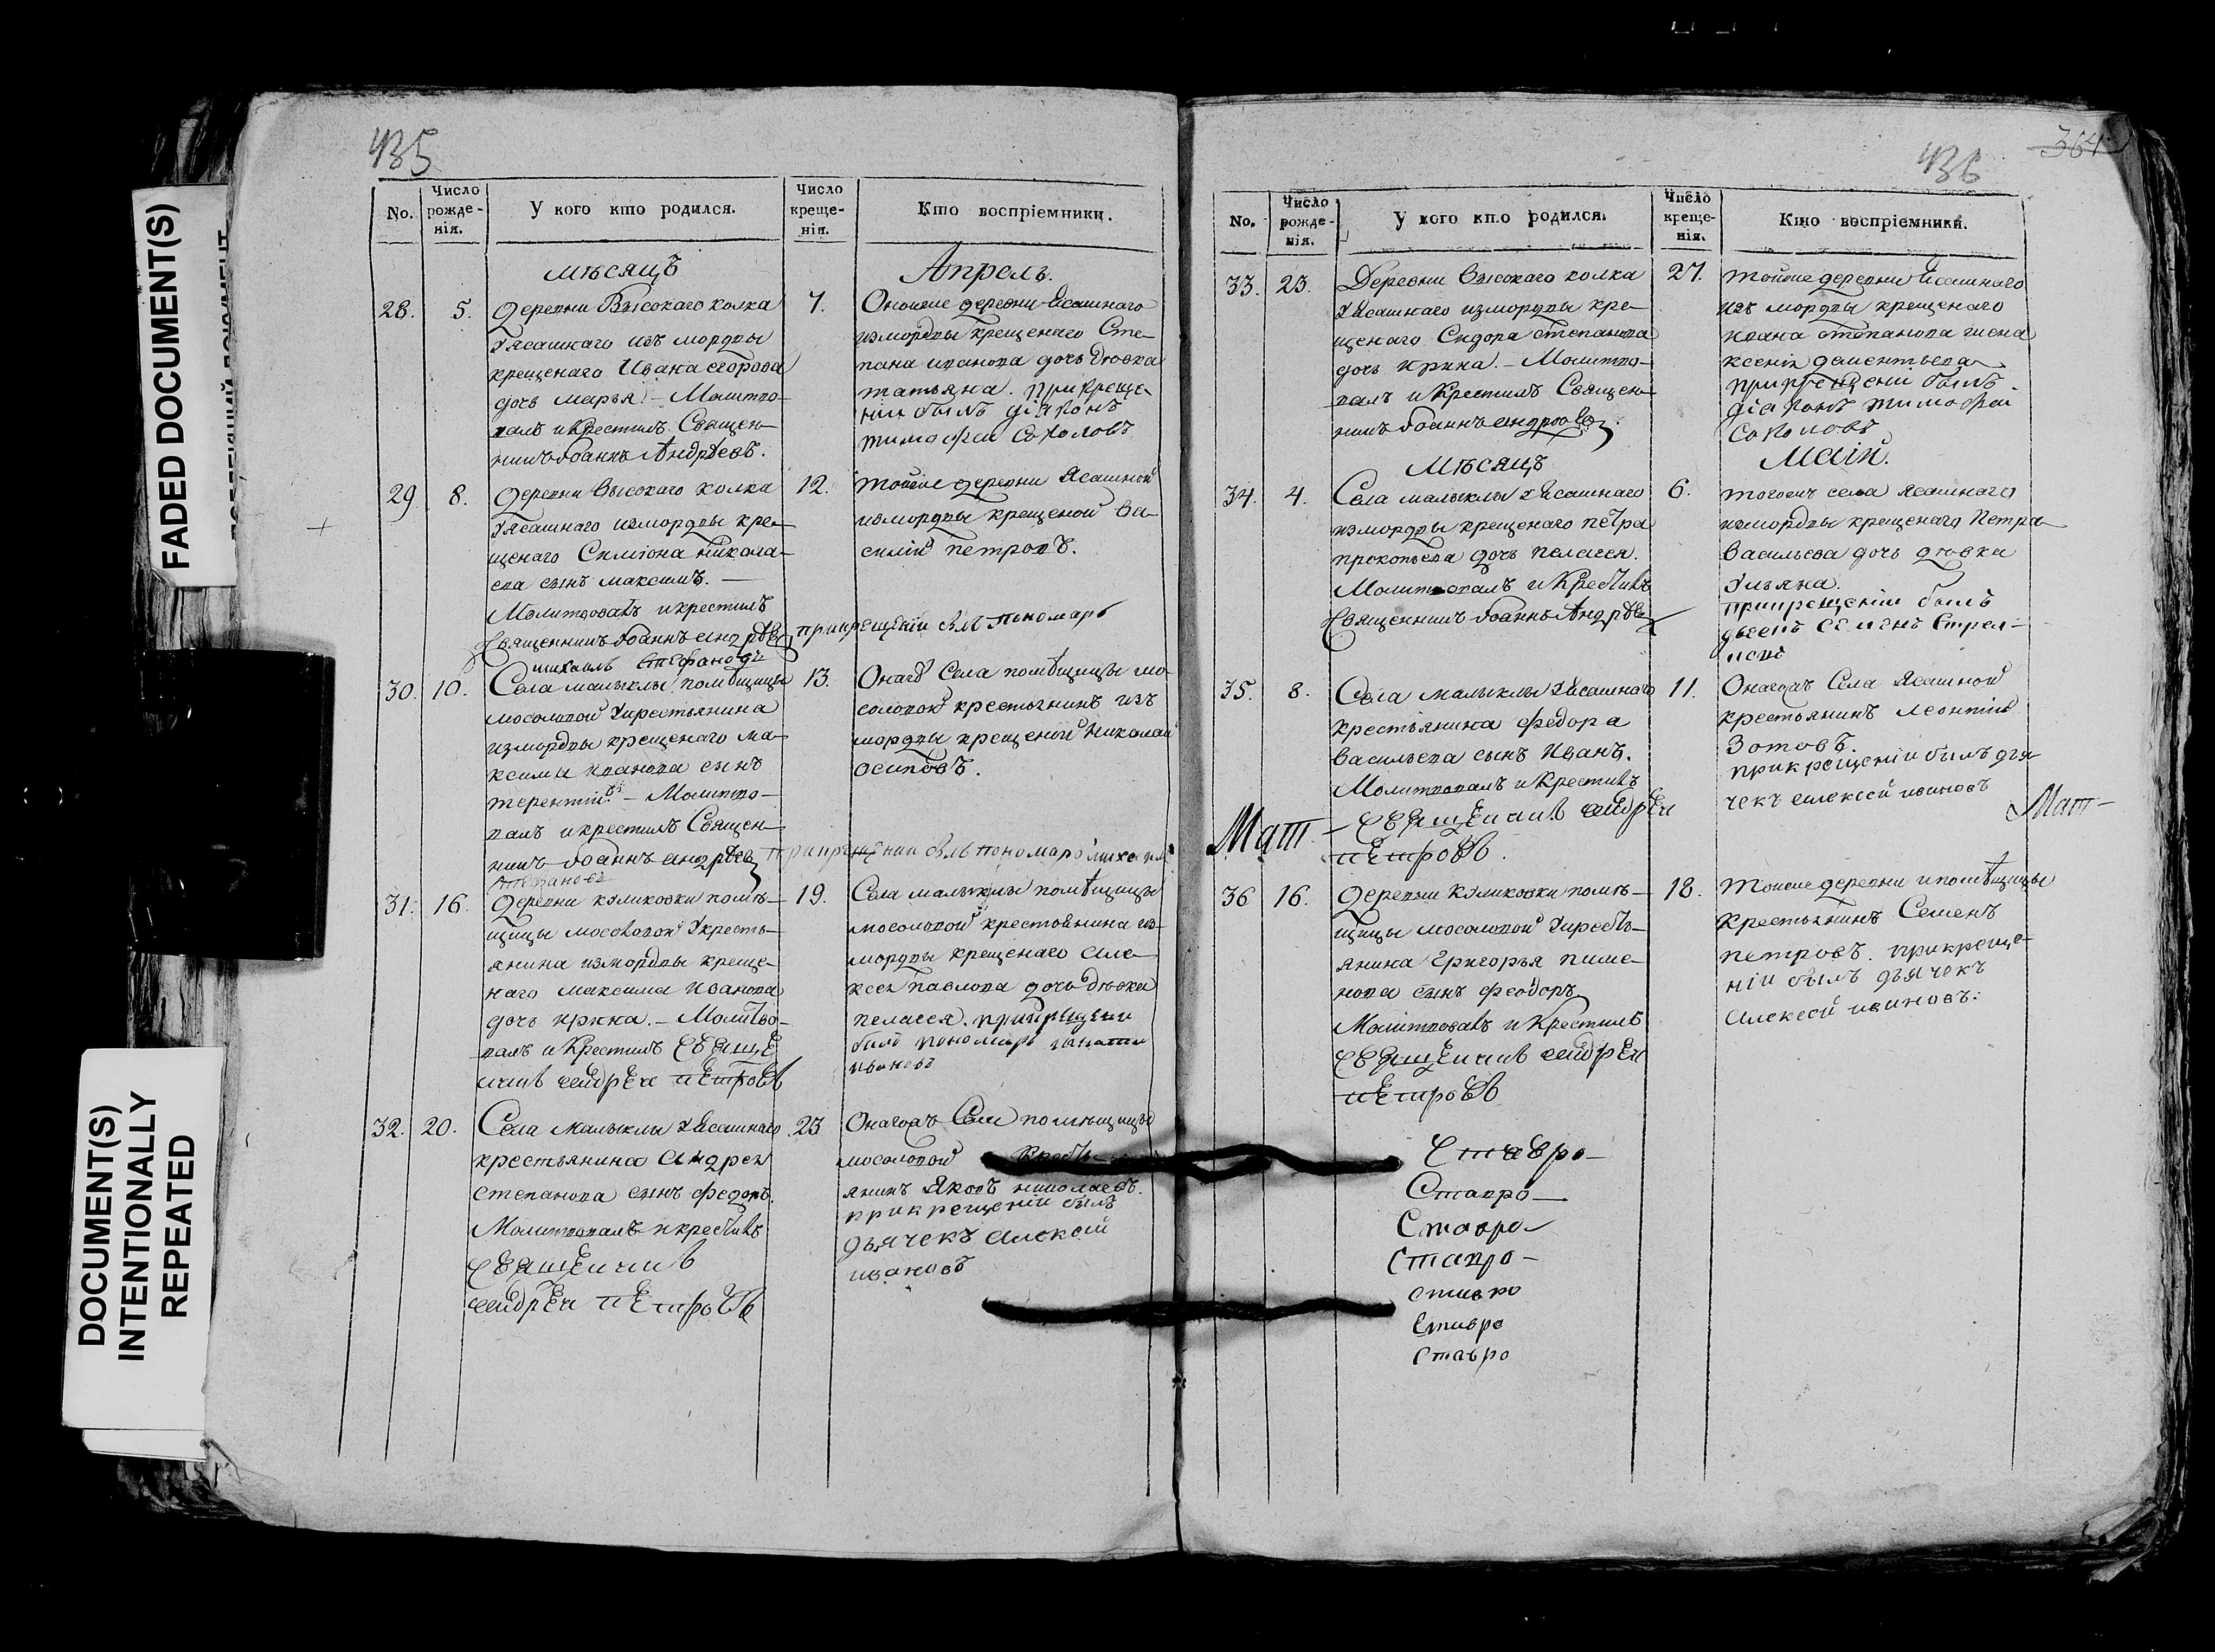 FADED DOCUMENT(S)
DOCUMENT(S)
INTENTIONALLY
REPEATED
435
No.
Число
рожде-
нія.
У кого кто родился.
Число
креще-
нія.
Кто воспріемники.
мѣсяцъ
Апрель.
28.
5.
деревни Высокаго колка
Уясашнаго изъ мордвы
крещенаго Ивана егорова
дочь марья. – Молитво-
валъ и крестилъ Священ-
никъ Іоаннъ Андрѣевъ.
7.
Оноиже деревни Ясашнаго
измордвы крещенаго Сте-
пана иванова дочь дѣвка
татьяна. при креще-
ніи былъ діяконъ
тимофеи Соколовъ
29
8.
деревни высокаго колка
Уясашнаго измордвы кре-
щенаго Симіона никола-
ева сынъ максимъ. —
Молитвовалъ и крестилъ
Священникъ Іоаннъ андрѣевъ
12.
тойже деревни Ясашной
измордвы крещеной ва-
силій петровъ.
прикрещеніи былъ пономарь
михаилъ Стефановъ
30.
10.
Села малыклы помѣщицы
мосоловой Укрестьянина
измордвы крещенаго ма-
ксима иванова сынъ
терентій. – Молитво-
валъ и крестилъ Священ-
никъ Іоаннъ андрѣевъ
13.
Онагѡ Села помѣщицы мо-
соловой крестьянинъ изъ
мордвы крещеной николай
осиповъ.
прикрещении былъ пономарь михаилъ
Стефановъ
31.
16.
деревни куликовки помѣ-
щицы мосоловой Укресть-
янина измордвы креще-
наго максима иванова
дочь ирина. – Молитво-
валъ и крестилъ свяще
никъ андреи петровъ
19.
Села малыклы помѣщицы
мосоловой крестьянина из-
мордвы крещенаго але-
ксея павлова дочь дѣвка
пелагея. прикрещени
былъ пономарь
ивановъ
32.
20.
Села малыклы Уясашнаго
крестьянина андрея
степанова сынъ федоръ.
Молитвовалъ и крестилъ
священикъ
андреи петровъ
23
Онагожъ Села помѣщицы
мосоловой кресть-
янинъ Яковъ николаевъ.
прикрещеніи былъ
дьячекъ алексѣй
ивановъ
436
364
No.
Число
рожде-
нія.
У кого кто родился.
Число
креще-
нія.
Кто воспріемники.
33.
23.
Деревни высокаго колка
Уясашнаго измордвы кре-
щенаго Сидора степанова
дочь ирина. – Молитво-
валъ и крестилъ Священ-
никъ Іоаннъ андрѣевъ.
27.
тойже деревни Ясашнаго
изъ мордвы крещенаго
ивана степанова жена
ксенія дементьева
прикрещени былъ
діяконъ тимофеи
соколовъ
Мѣсяцъ
Маій.
34.
4.
Села малыклы Уясашнаго
измордвы крещенаго петра
прокопьева дочь пелагея.
Молитвовалъ и крестилъ
Священникъ Іоаннъ Андрѣевъ
6.
тогожъ села ясашнаго
измордвы крещенаго Петра
васильева дочь дѣвка
Ульяна.
прикрещеніи былъ
семенъ
35.
8.
Села малыклы Уясашнаго
крестьянина федора
васильева сынъ иванъ.
Молитвовалъ и крестилъ
священикъ андреи
петровъ.
11.
Онагожъ Села Ясашной
крестьянинъ леонтій
Зотовъ.
прикрещеніи былъ дья-
чекъ алексѣй ивановъ
Мат-
Мат-
36
16.
деревни куликовки помѣ-
щицы мосоловой Укресть-
янина Григорья пиме-
нова сынъ феодоръ
Молитвовалъ и крестилъ
священикъ андреи
петровъ
18.
тойже деревни и помѣщицы
крестьянинъ Семенъ
петровъ. прикреще-
ніи былъ дьячекъ
алексѣй ивановъ.
Ставро-
Ставро-
Ставро-
Ставро-
ставро
Ставро
Ставро